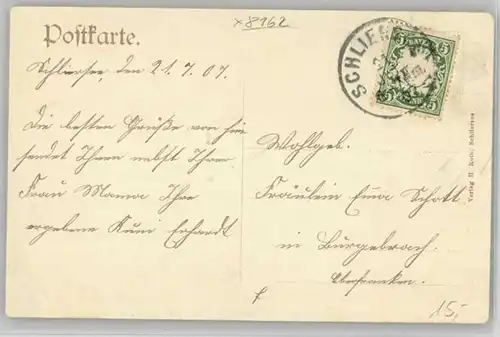 x8162
Postkarte.
SCHLIER
BAYERN
5 5
5 5
Schliersee, den 21.7.07.
Die besten Grüße von hier
sendet Ihnen nebst Ihrer
Frau Mama Ihre
ergebene Erhardt
Wohlgeb.
Fräulein Schott
in Burgebrach.
Oberfranken.
Verlag H. Koch, Schliersee
15,-